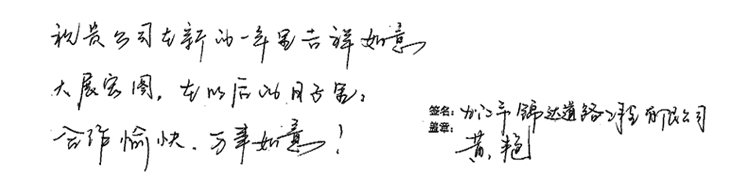 祝贵公司在新的一年里吉祥如意
大展宏图，在以后的日子里：
合作愉快、万事如意！
签名：江市锦达道路工程有限公司
盖章：黄艳